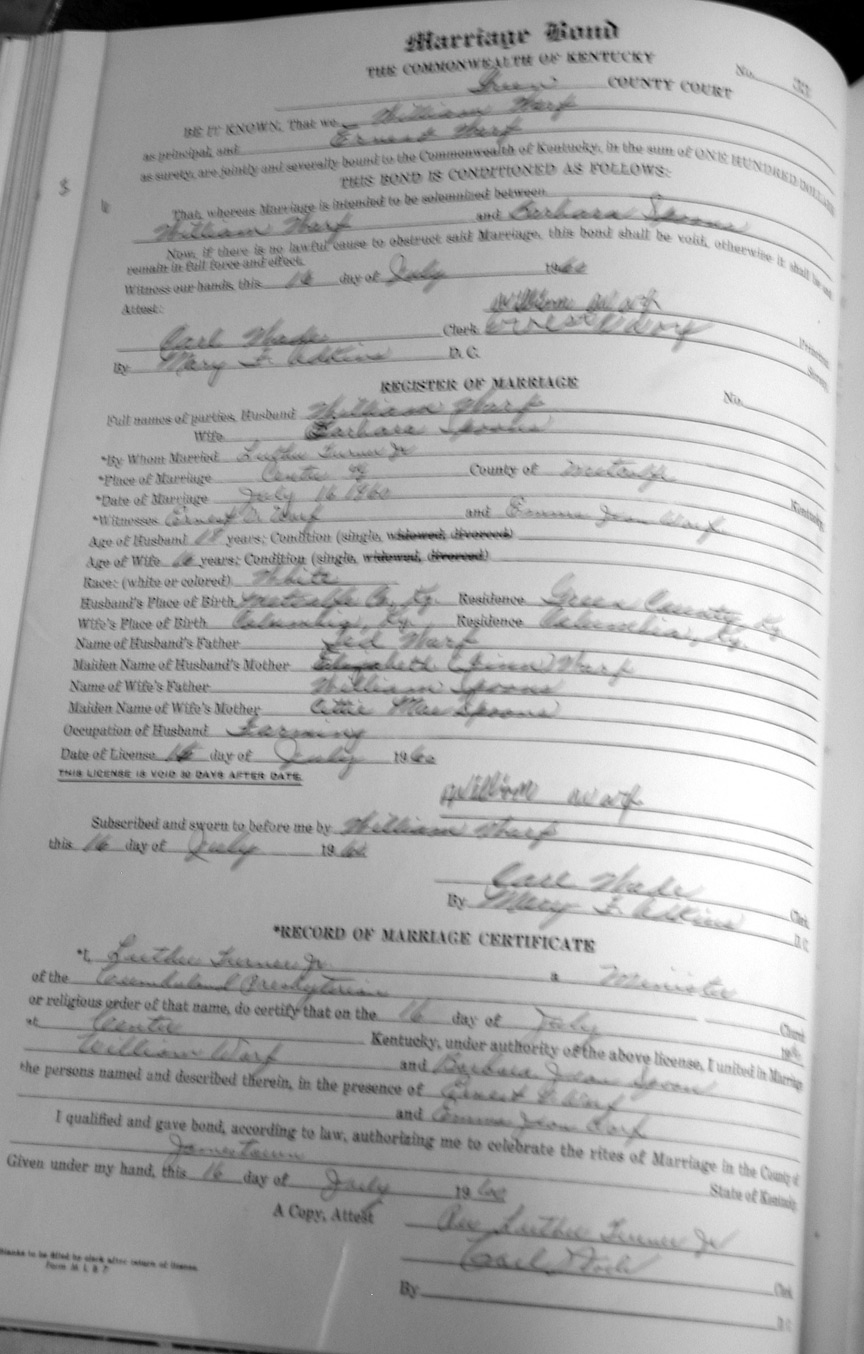 Marriage Bond
THE COMMONWEALTH OF KENTUCKY
No. 33
Green COUNTY COURT
BE IT KNOWN, That we William Warf
as principal, and Ernest Warf
as surety, are jointly and severally bound to the Commonwealth of Kentucky, in the sum of ONE HUNDRED DOLLARS
THIS BOND IS CONDITIONED AS FOLLOWS:
That, whereas Marriage is intended to be solemnized between
William Warf and Barbara Spoons
Now, if there is no lawful cause to obstruct said Marriage, this bond shall be void, otherwise it shall be and
remain in full force and effect.
Witness our hands, this 16 day of July 1960
Attest: William Warf
Principal
Carl Wade Clerk
Surety
By Mary F. Adkins D. C.
REGISTER OF MARRIAGE
No.
Full names of parties, Husband William Warf
Wife Barbara Spoons
*By Whom Married Luther Turner Jr
*Place of Marriage Center Ky County of Metcalfe
Kentucky
*Date of Marriage July 16 1960
*Witnesses Ernest D. Warf and Emma Jean Warf
Age of Husband 18 years; Condition (single, widowed, divorced)
Age of Wife 16 years; Condition (single, widowed, divorced)
Race: (white or colored) White
Husband's Place of Birth Metcalfe Co., Ky. Residence Green County, Ky
Wife's Place of Birth Columbia, Ky. Residence Columbia, Ky.
Name of Husband's Father Ted Warf
Maiden Name of Husband's Mother Elizabeth (Finn) Warf
Name of Wife's Father William Spoons
Maiden Name of Wife's Mother Mae Spoons
Occupation of Husband Farming
Date of License 16 day of July 1960
THIS LICENSE IS VOID 30 DAYS AFTER DATE.
William Warf
Subscribed and sworn to before me by William Warf
this 16 day of July 1960
Carl Wade Clerk
By Mary F. Adkins D. C.
*RECORD OF MARRIAGE CERTIFICATE
*I, Luther Turner Jr a Minister
of the Cumberland Presbyterian Church
or religious order of that name, do certify that on the 16 day of July 1960
at Center Kentucky, under authority of the above license, I united in Marriage
William Warf and Barbara Jean Spoon
the persons named and described therein, in the presence of Ernest D. Warf
and Emma Jean Warf
I qualified and gave bond, according to law, authorizing me to celebrate the rites of Marriage in the County of
Jamestown State of Kentucky
Given under my hand, this 16 day of July 1960
Rev Luther Turner Jr
A Copy, Attest
Carl Wade Clerk
By D. C.
Blanks to be filled by clerk after return of license.